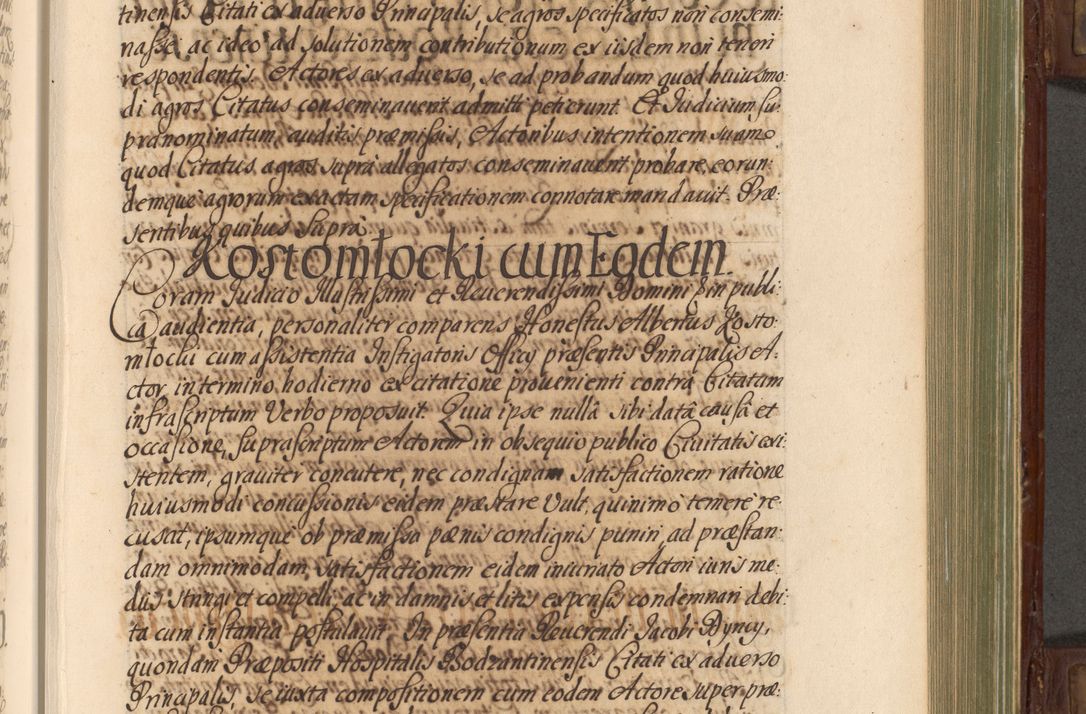 tinensis Citati ex adverso Principalis, se agros specificatos non consemi-
nasse, ac ideo ad solutionem contributionum ex iisdem non teneri
respondentis. Actores ex adverso, se ad probandum quod huiusmo-
di agros Citatus conseminaverit admitti petierunt. Et Iudicium su-
pranominatum, auditis præmissis, Actoribus intentionem suam
quod Citatus agros supra allegatos conseminaverit probare, eorun-
demque agrorum exactam specificationem connotare mandavit. Præ-
sentibus quibus supra.
Kostomłocki cum Eodem.
Coram Iudicio Illustrissimi et Reverendissimi Domini E in publi-
ca audientia, personaliter comparens Honestus Albertus Kosto-
młocki cum assistentia Instigatoris Officij præsentis Principalis A-
ctor, in termino hodierno ex citatione provenienti contra Citatum
infrascriptum Verbo proposuit. Quia ipse nullâ sibi datâ causâ et
occasione, suprascriptum Actorem in obsequio publico Civitatis exi-
stentem, graviter concutere, nec condignam satisfactionem ratione
huiusmodi concussionis eidem præstare Vult, quinimo temere re-
cusat, ipsumque ob præmissa pænis condignis puniri, ad præstan-
dam omnimodam satisfactionem eidem iniuriato Actori iuris me-
diis stringi et compelli, ac in damnis et litis expensis condemnari debi-
ta cum instantia postulavit. In præsentia Reverendi Iacobi Byncy,
quondam Præpositi Hospitalis Bodzantinensis Citati ex adverso
Principalis, se iuxta compositionem cum eodem Actore super præ-